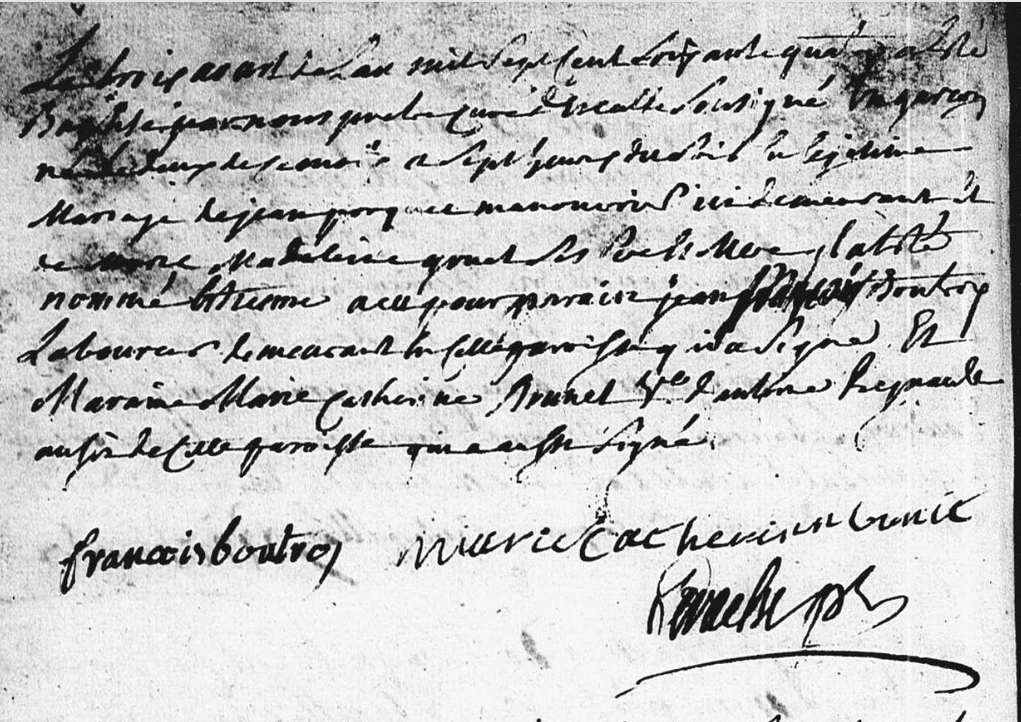 Le trois aout de l'an mil sept cent soixante quatre a été
Baptisé par nous pretre curé soussigné un garçon
né le deux de ce mois a sept heures du en legitime
Mariage de jean manouvrier ici demeurant et
de Marie Madeleine ses Pere et Mere, il a été
nommé Etienne a eu pour parain jean françois Boutroy
Laboureur demeurant en cette paroisse qui a signé. Et
Maraine Marie Catherine Brunet Ve d'antoine Regnault
aussi de cette paroisse qui a aussi signé
francois boutroy marie Catherinne